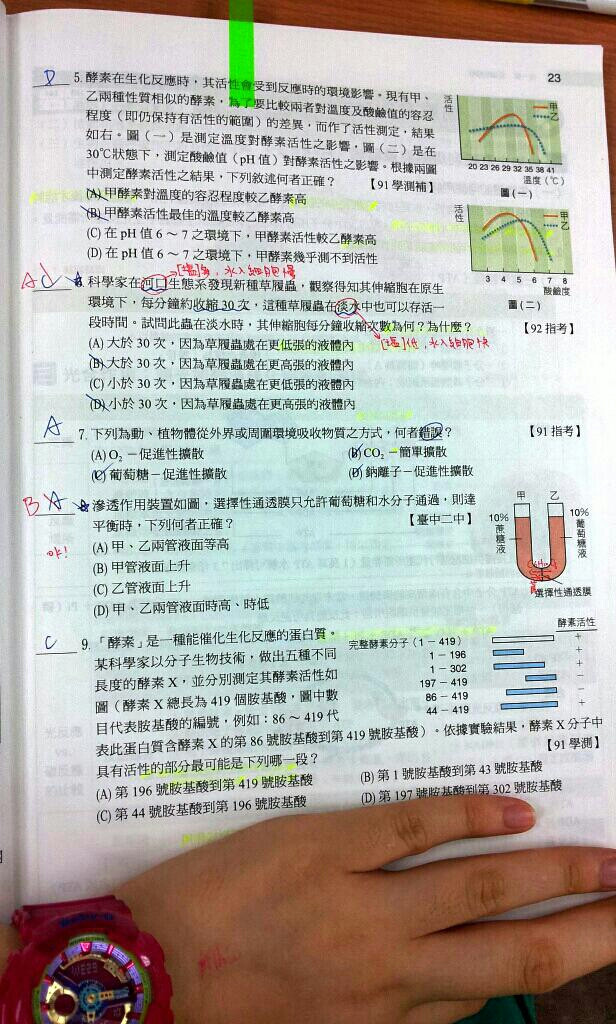 23
D
5. 酵素在生化反應時，其活性會受到反應時的環境影響。現有甲、
乙兩種性質相似的酵素，為了要比較兩者對溫度及酸鹼值的容忍
程度（即仍保持有活性的範圍）的差異，而作了活性測定，結果
如右。圖（一）是測定溫度對酵素活性之影響，圖（二）是在
30℃狀態下，測定酸鹼值（pH 值）對酵素活性之影響。根據兩圖
中測定酵素活性之結果，下列敘述何者正確？【91 學測補】
(A) 甲酵素對溫度的容忍程度較乙酵素高
(B) 甲酵素活性最佳的溫度較乙酵素高
(C) 在 pH 值 6～7 之環境下，甲酵素活性較乙酵素高
(D) 在 pH 值 6～7 之環境下，甲酵素幾乎測不到活性
活性
甲
乙
20 23 26 29 32 35 38 41
溫度（℃）
圖(一)
活性
甲
乙
3 4 5 6 7 8
酸鹼度
圖(二)
[鹽]高，水入細胞慢
A d
科學家在河口生態系發現新種草履蟲，觀察得知其伸縮胞在原生
環境下，每分鐘約收縮 30 次，這種草履蟲在淡水中也可以存活一
段時間。試問此蟲在淡水時，其伸縮胞每分鐘收縮次數為何？為什麼？【92 指考】
[鹽]低，水入細胞快
(A) 大於 30 次，因為草履蟲處在更低張的液體內
(B) 大於 30 次，因為草履蟲處在更高張的液體內
(C) 小於 30 次，因為草履蟲處在更低張的液體內
(D) 小於 30 次，因為草履蟲處在更高張的液體內
A
7. 下列為動、植物體從外界或周圍環境吸收物質之方式，何者錯誤？【91 指考】
(A) O₂－促進性擴散 (B) CO₂－簡單擴散
(C) 葡萄糖－促進性擴散 (D) 鈉離子－促進性擴散
B A
滲透作用裝置如圖，選擇性通透膜只允許葡萄糖和水分子通過，則達
平衡時，下列何者正確？【臺中二中】
(A) 甲、乙兩管液面等高
(B) 甲管液面上升
(C) 乙管液面上升
(D) 甲、乙兩管液面時高、時低
甲 乙
10% 蔗糖液
10% 葡萄糖液
選擇性通透膜
C
9. 「酵素」是一種能催化生化反應的蛋白質。
某科學家以分子生物技術，做出五種不同
長度的酵素 X，並分別測定其酵素活性如
圖（酵素 X 總長為 419 個胺基酸，圖中數
目代表胺基酸的編號，例如：86～419 代
表此蛋白質含酵素 X 的第 86 號胺基酸到第 419 號胺基酸）。依據實驗結果，酵素 X 分子中
具有活性的部分最可能是下列哪一段？【91 學測】
酵素活性
完整酵素分子（1－419） ＋
1－196 ＋
1－302 ＋
197－419 －
86－419 －
44－419 ＋
(A) 第 196 號胺基酸到第 419 號胺基酸 (B) 第 1 號胺基酸到第 43 號胺基酸
(C) 第 44 號胺基酸到第 196 號胺基酸 (D) 第 197 號胺基酸到第 302 號胺基酸